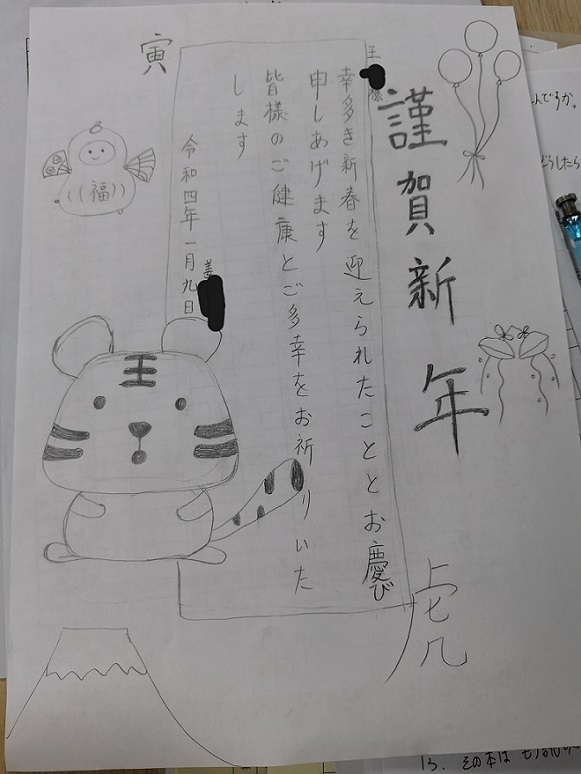 謹賀新年
王
様
幸多き新春を迎えられたこととお慶び
申しあげます
皆様のご健康とご多幸をお祈りいた
します
令和四年一月九日
寅
福
王
虎
んですか。
どうしたら
13. その本は